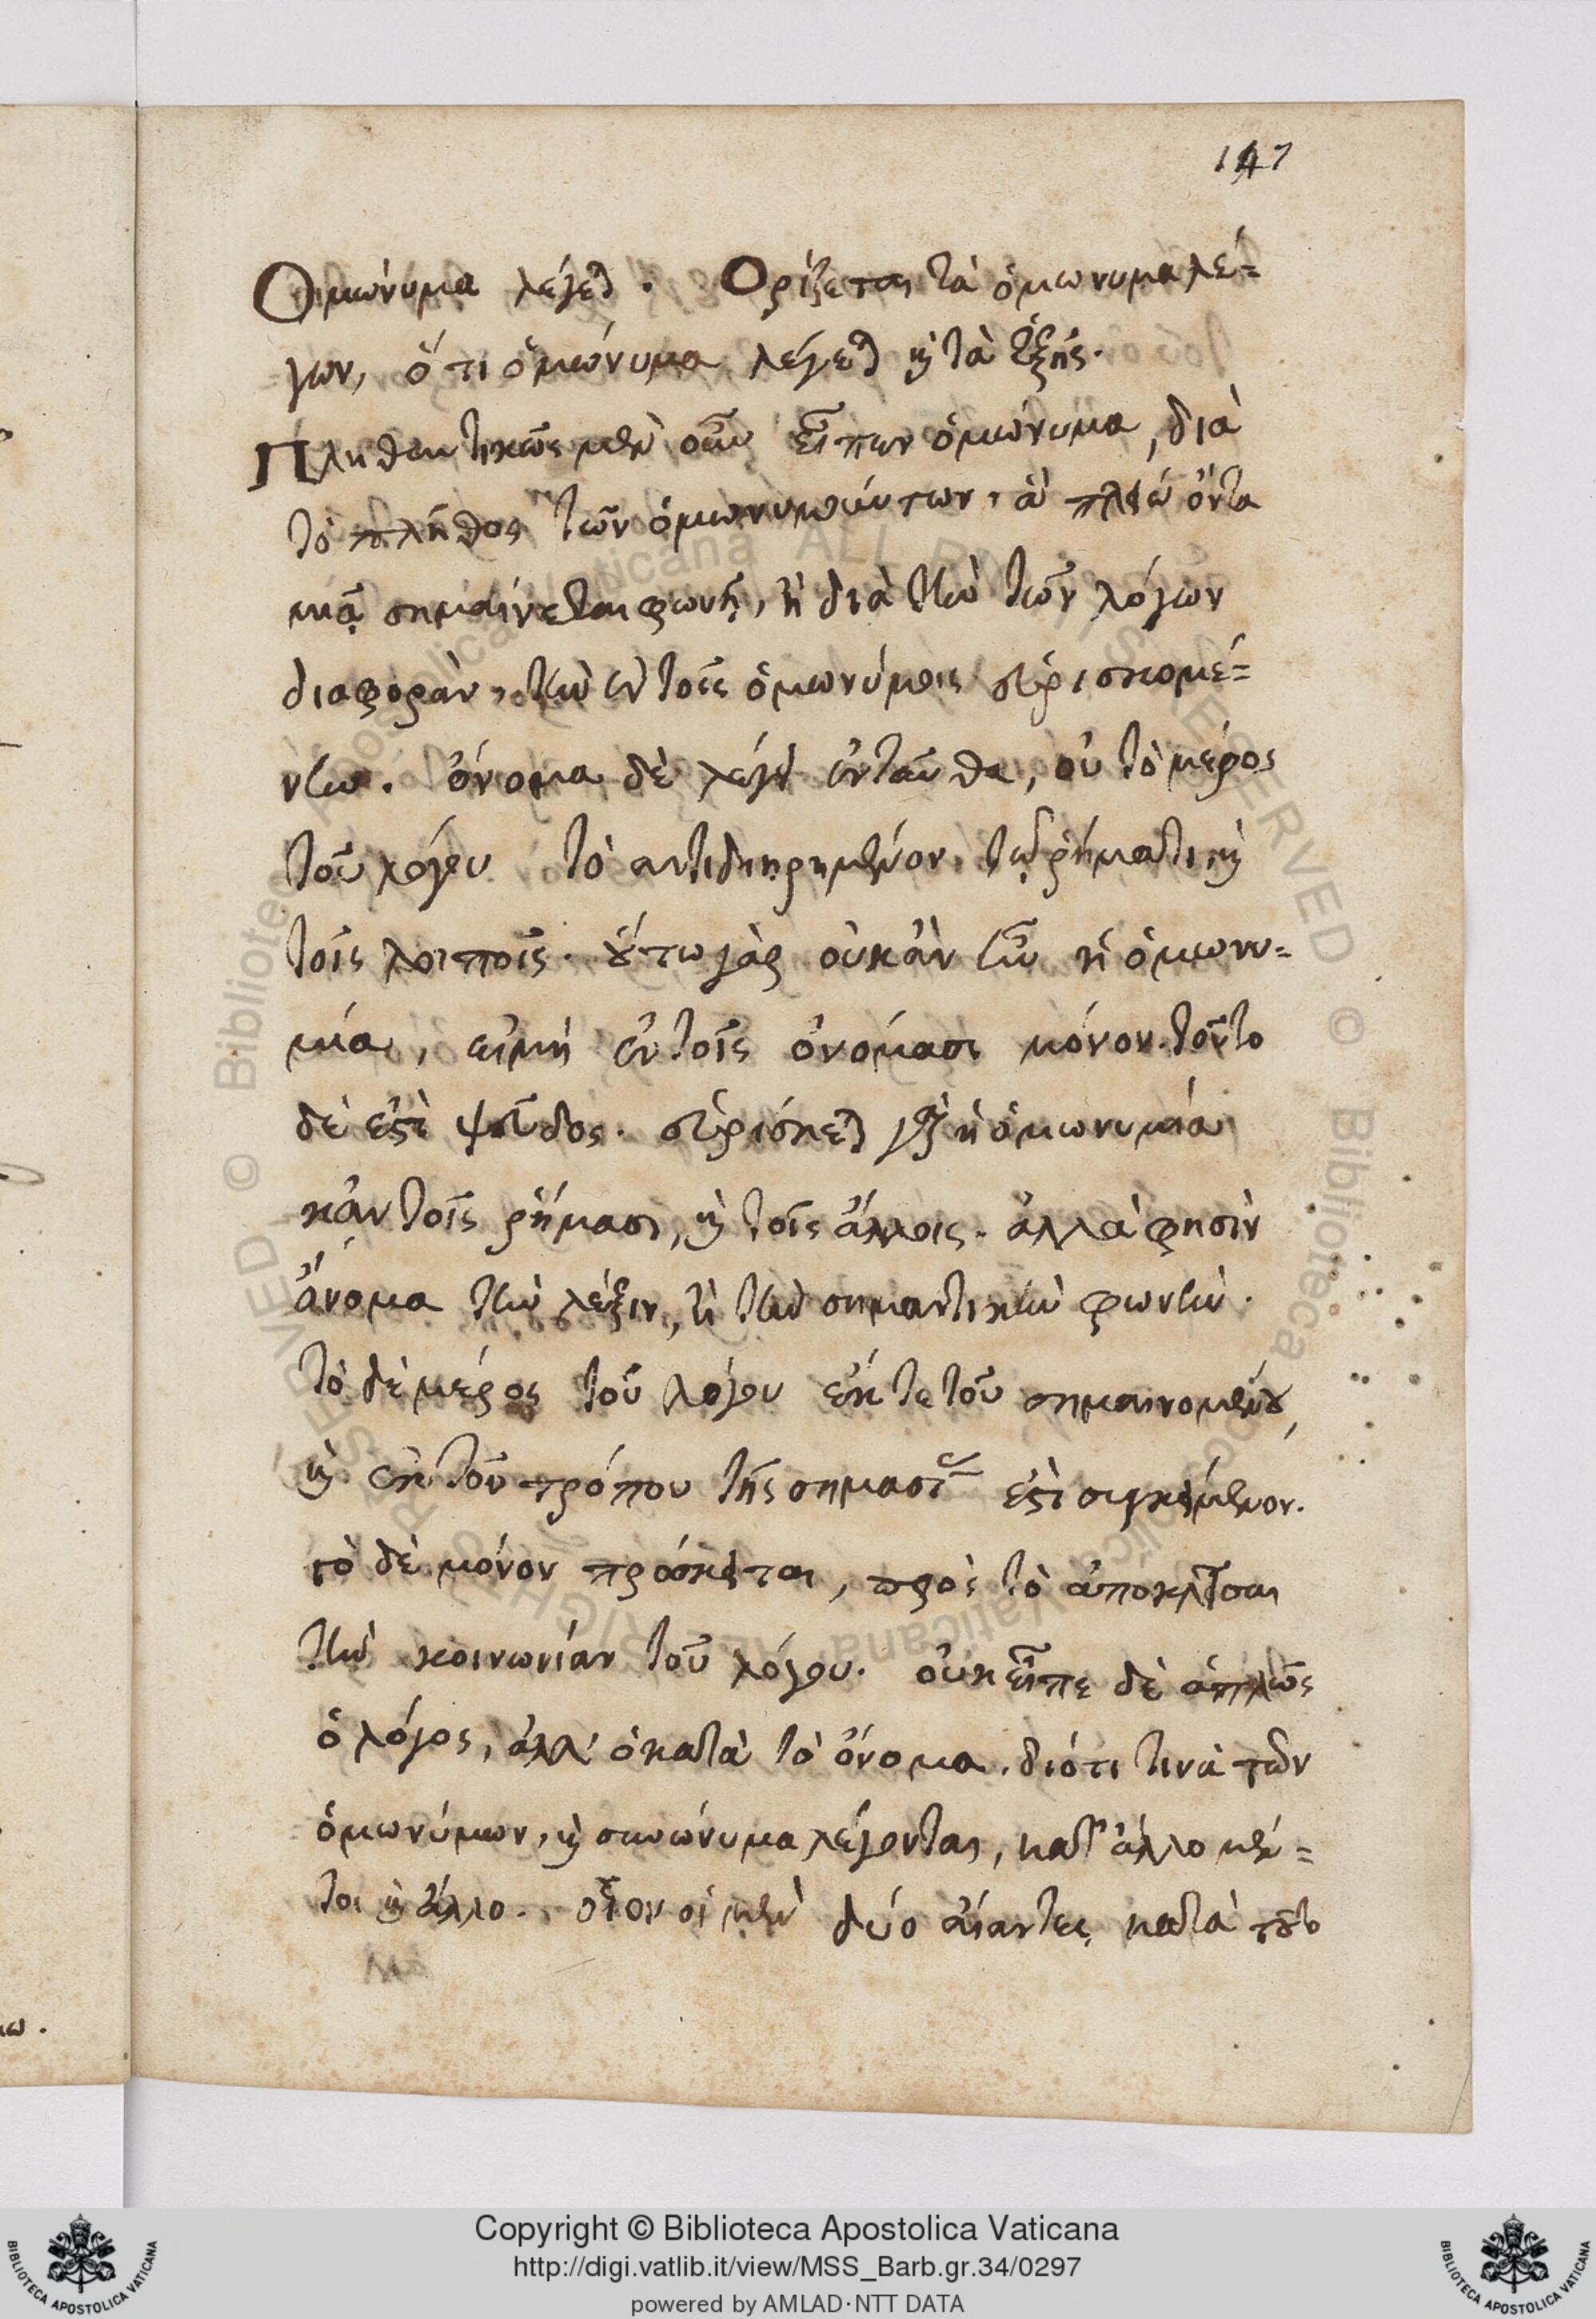 147
Ὁμώνυμα λέγεται. Ὁρίζεται τὰ ὁμώνυμα λέ=
γων, ὅτι ὁμώνυμα λέγεται καὶ τὰ ἑξῆς.
Πληθυντικῶς μὲν οὖν εἶπεν ὁμώνυμα, διὰ
τὸ πλῆθος τῶν ὁμωνυμούντων, ἃ πλείω ὄντα
μιᾷ σημαίνεται φωνῇ, ἢ διὰ τὴν τῶν λόγων
διαφορὰν, τὴν ἐν τοῖς ὁμωνύμοις εὑρισκομέ=
νην. ὄνομα δὲ λέγει ἐνταῦθα, οὐ τὸ μέρος
τοῦ λόγου τὸ αντιδιῃρημένον τῷ ῥήματι καὶ
τοῖς λοιποῖς. οὕτω γὰρ οὐκ ἂν ἦν ἡ ὁμωνυ=
μία, εἰμὴ ἐν τοῖς ὀνόμασι μόνον. τοῦτο
δέ ἐστι ψεῦδος. εὑρίσκεται γὰρ ἡ ὁμωνυμία
κᾀν τοῖς ῥήμασι, καὶ τοῖς ἄλλοις. ἀλλὰ φησὶν
ὄνομα τὴν λέξιν, καὶ τὴν σημαντικὴν φωνὴν.
τὸ δὲ μέρος τοῦ λόγου ἔκ τε τοῦ σημαινομένου,
καὶ ἐκ τοῦ τρόπου τῆς σημασίας ἐστὶ συγκείμενον.
τὸ δὲ μόνον πρόσκειται, πρὸς τὸ ἀποκλεῖσαι
τὴν κοινωνίαν τοῦ λόγου. οὐκ εἶπε δὲ ἁπλῶς
ὁ λόγος, ἀλλ' ὁ κατὰ τὸ ὄνομα. διότι τινὰ τῶν
ὁμωνύμων, καὶ συνώνυμα λέγονται, κατ' ἄλλο μέν=
τοι καὶ ἄλλο. οἷον οἱ μὲν δύο αἴαντες κατὰ τοῦτο
Copyright © Biblioteca Apostolica Vaticana
http://digi.vatlib.it/view/MSS_Barb.gr.34/0297
powered by AMLAD·NTT DATA
BIBLIOTECA APOSTOLICA VATICANA
BIBLIOTECA APOSTOLICA VATICANA